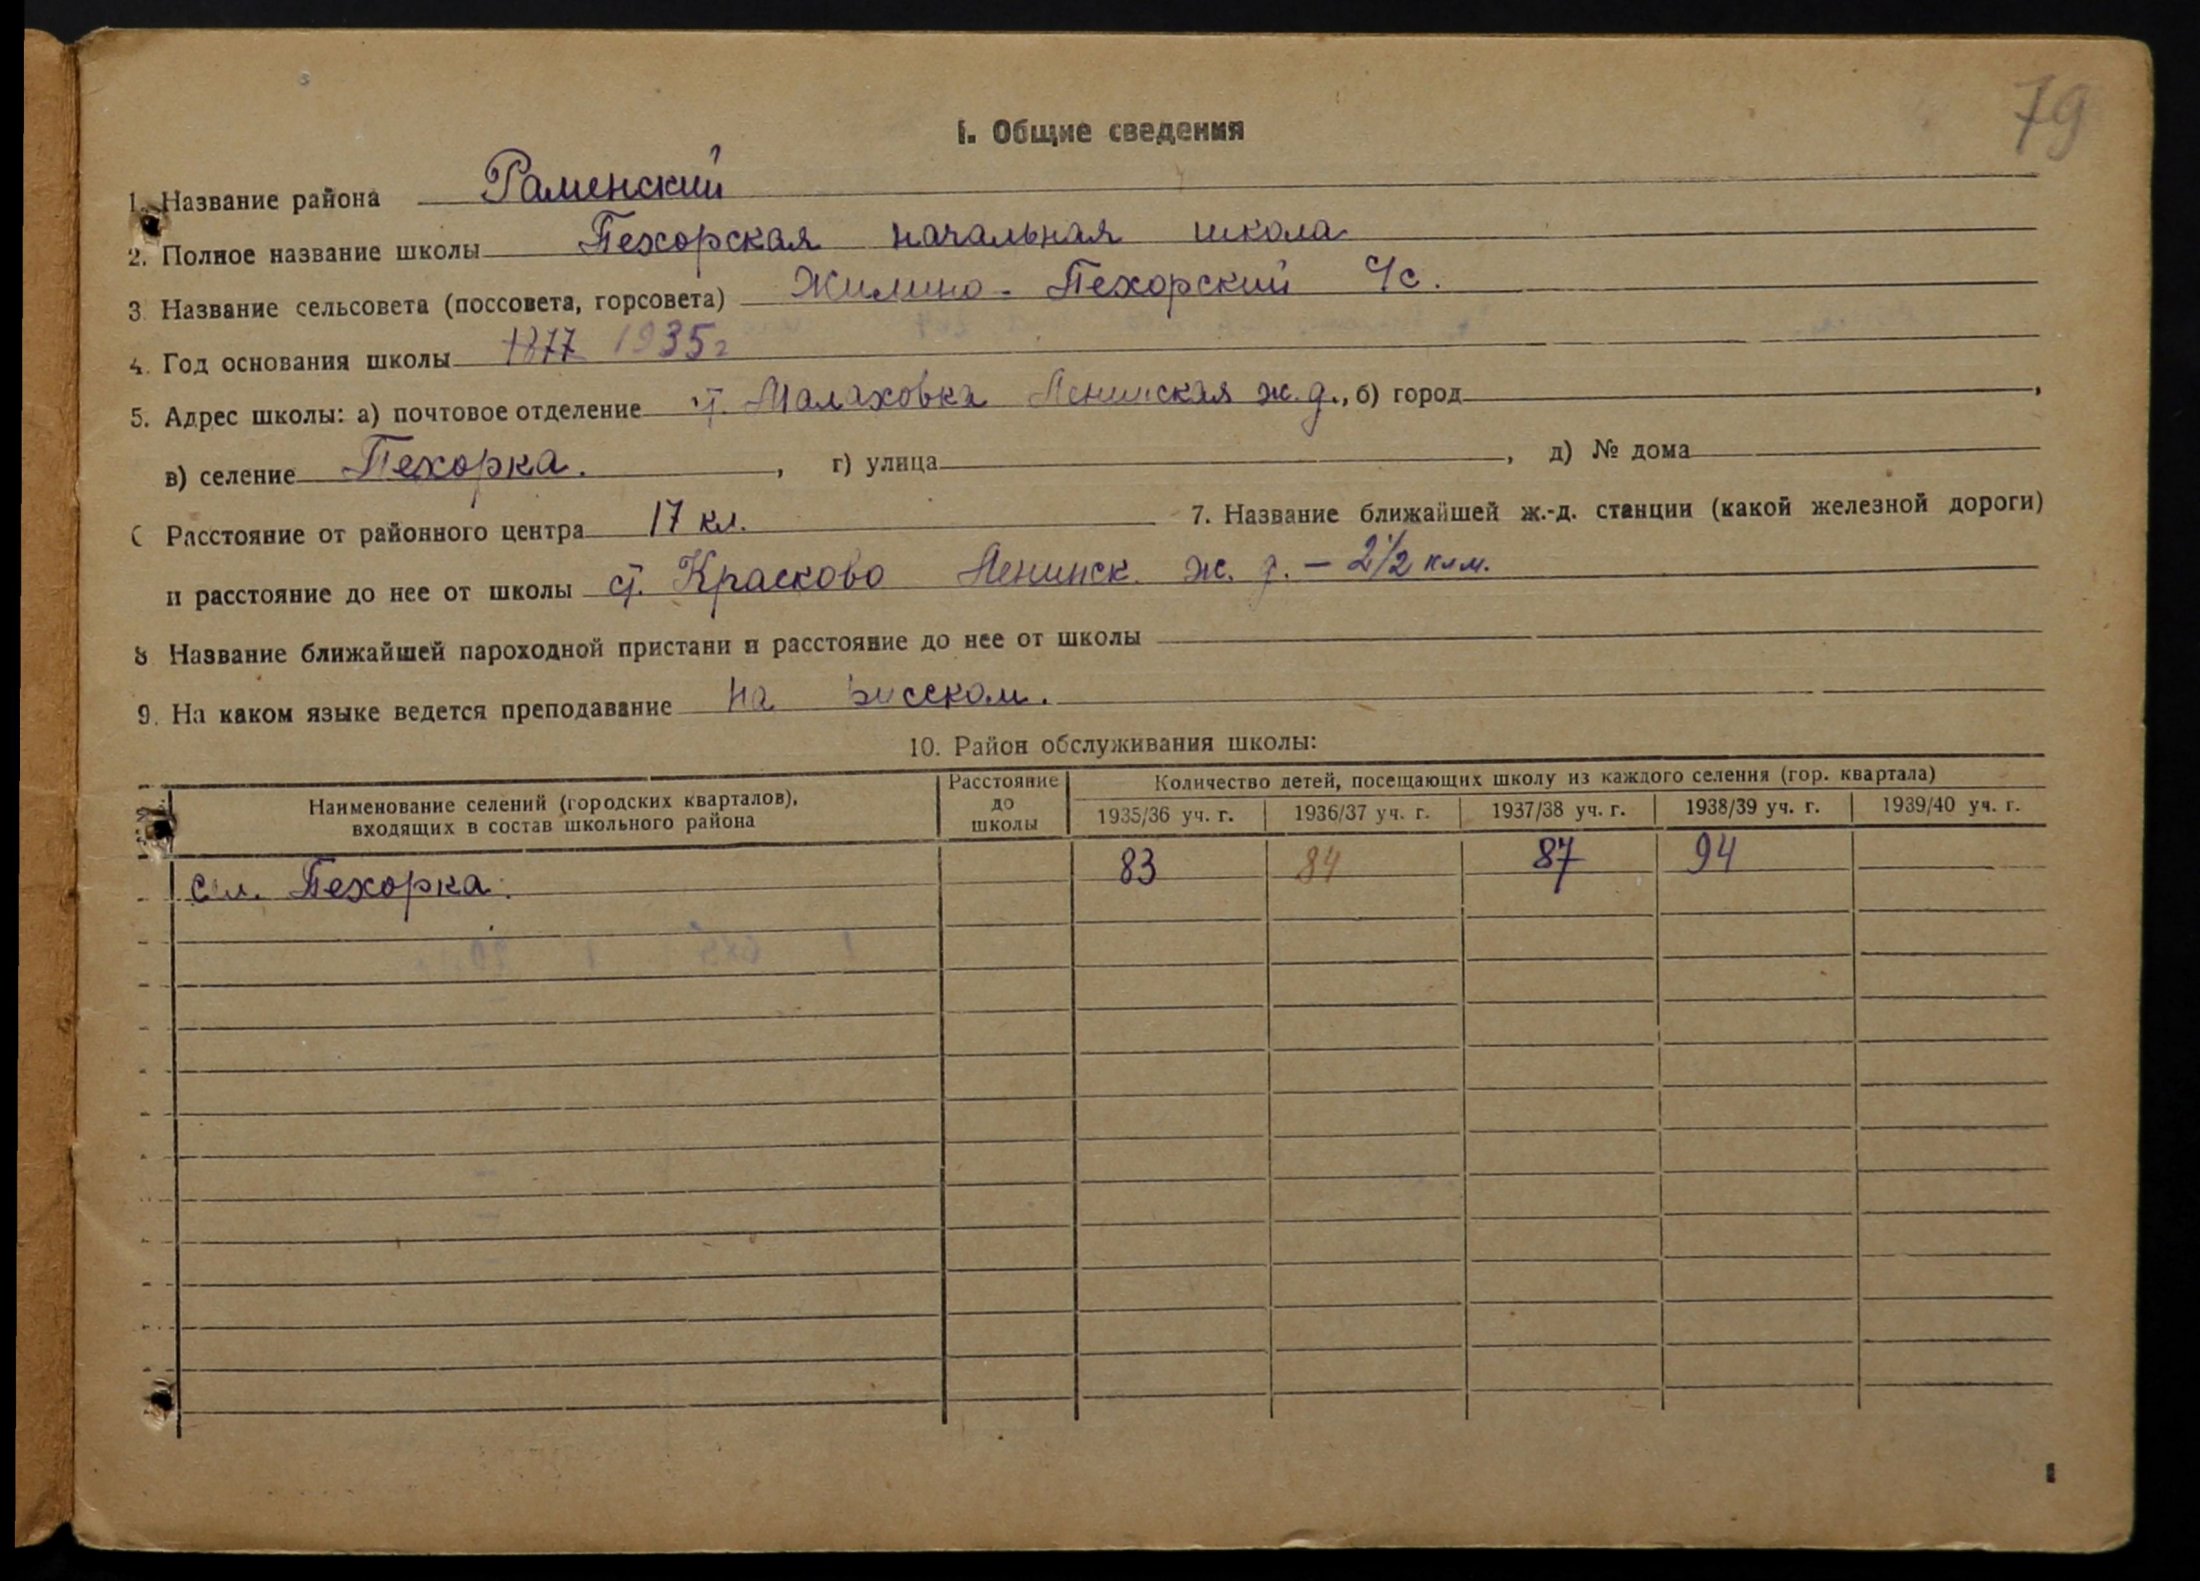 79
I. Общие сведения
1. Название района Раменский
2. Полное название школы Пехорская начальная школа
3 Название сельсовета (поссовета, горсовета) Жилино-Пехорский с/с.
4. Год основания школы 1877 1935г
5. Адрес школы: а) почтовое отделение ст. Малаховка Ленинская ж.д., б) город ,
в) селение Пехорка. , г) улица , д) № дома
6 Расстояние от районного центра 17 кл. 7. Название ближайшей ж.-д. станции (какой железной дороги)
и расстояние до нее от школы ст. Красково Ленинск. ж. д. – 2 1/2 клм.
8 Название ближайшей пароходной пристани и расстояние до нее от школы
9. На каком языке ведется преподавание на русском.
10. Район обслуживания школы:
Наименование селений (городских кварталов), входящих в состав школьного района Расстояние до школы Количество детей, посещающих школу из каждого селения (гор. квартала)
1935/36 уч. г. 1936/37 уч. г. 1937/38 уч. г. 1938/39 уч. г. 1939/40 уч. г.
сел. Пехорка. 83 84 87 94
1